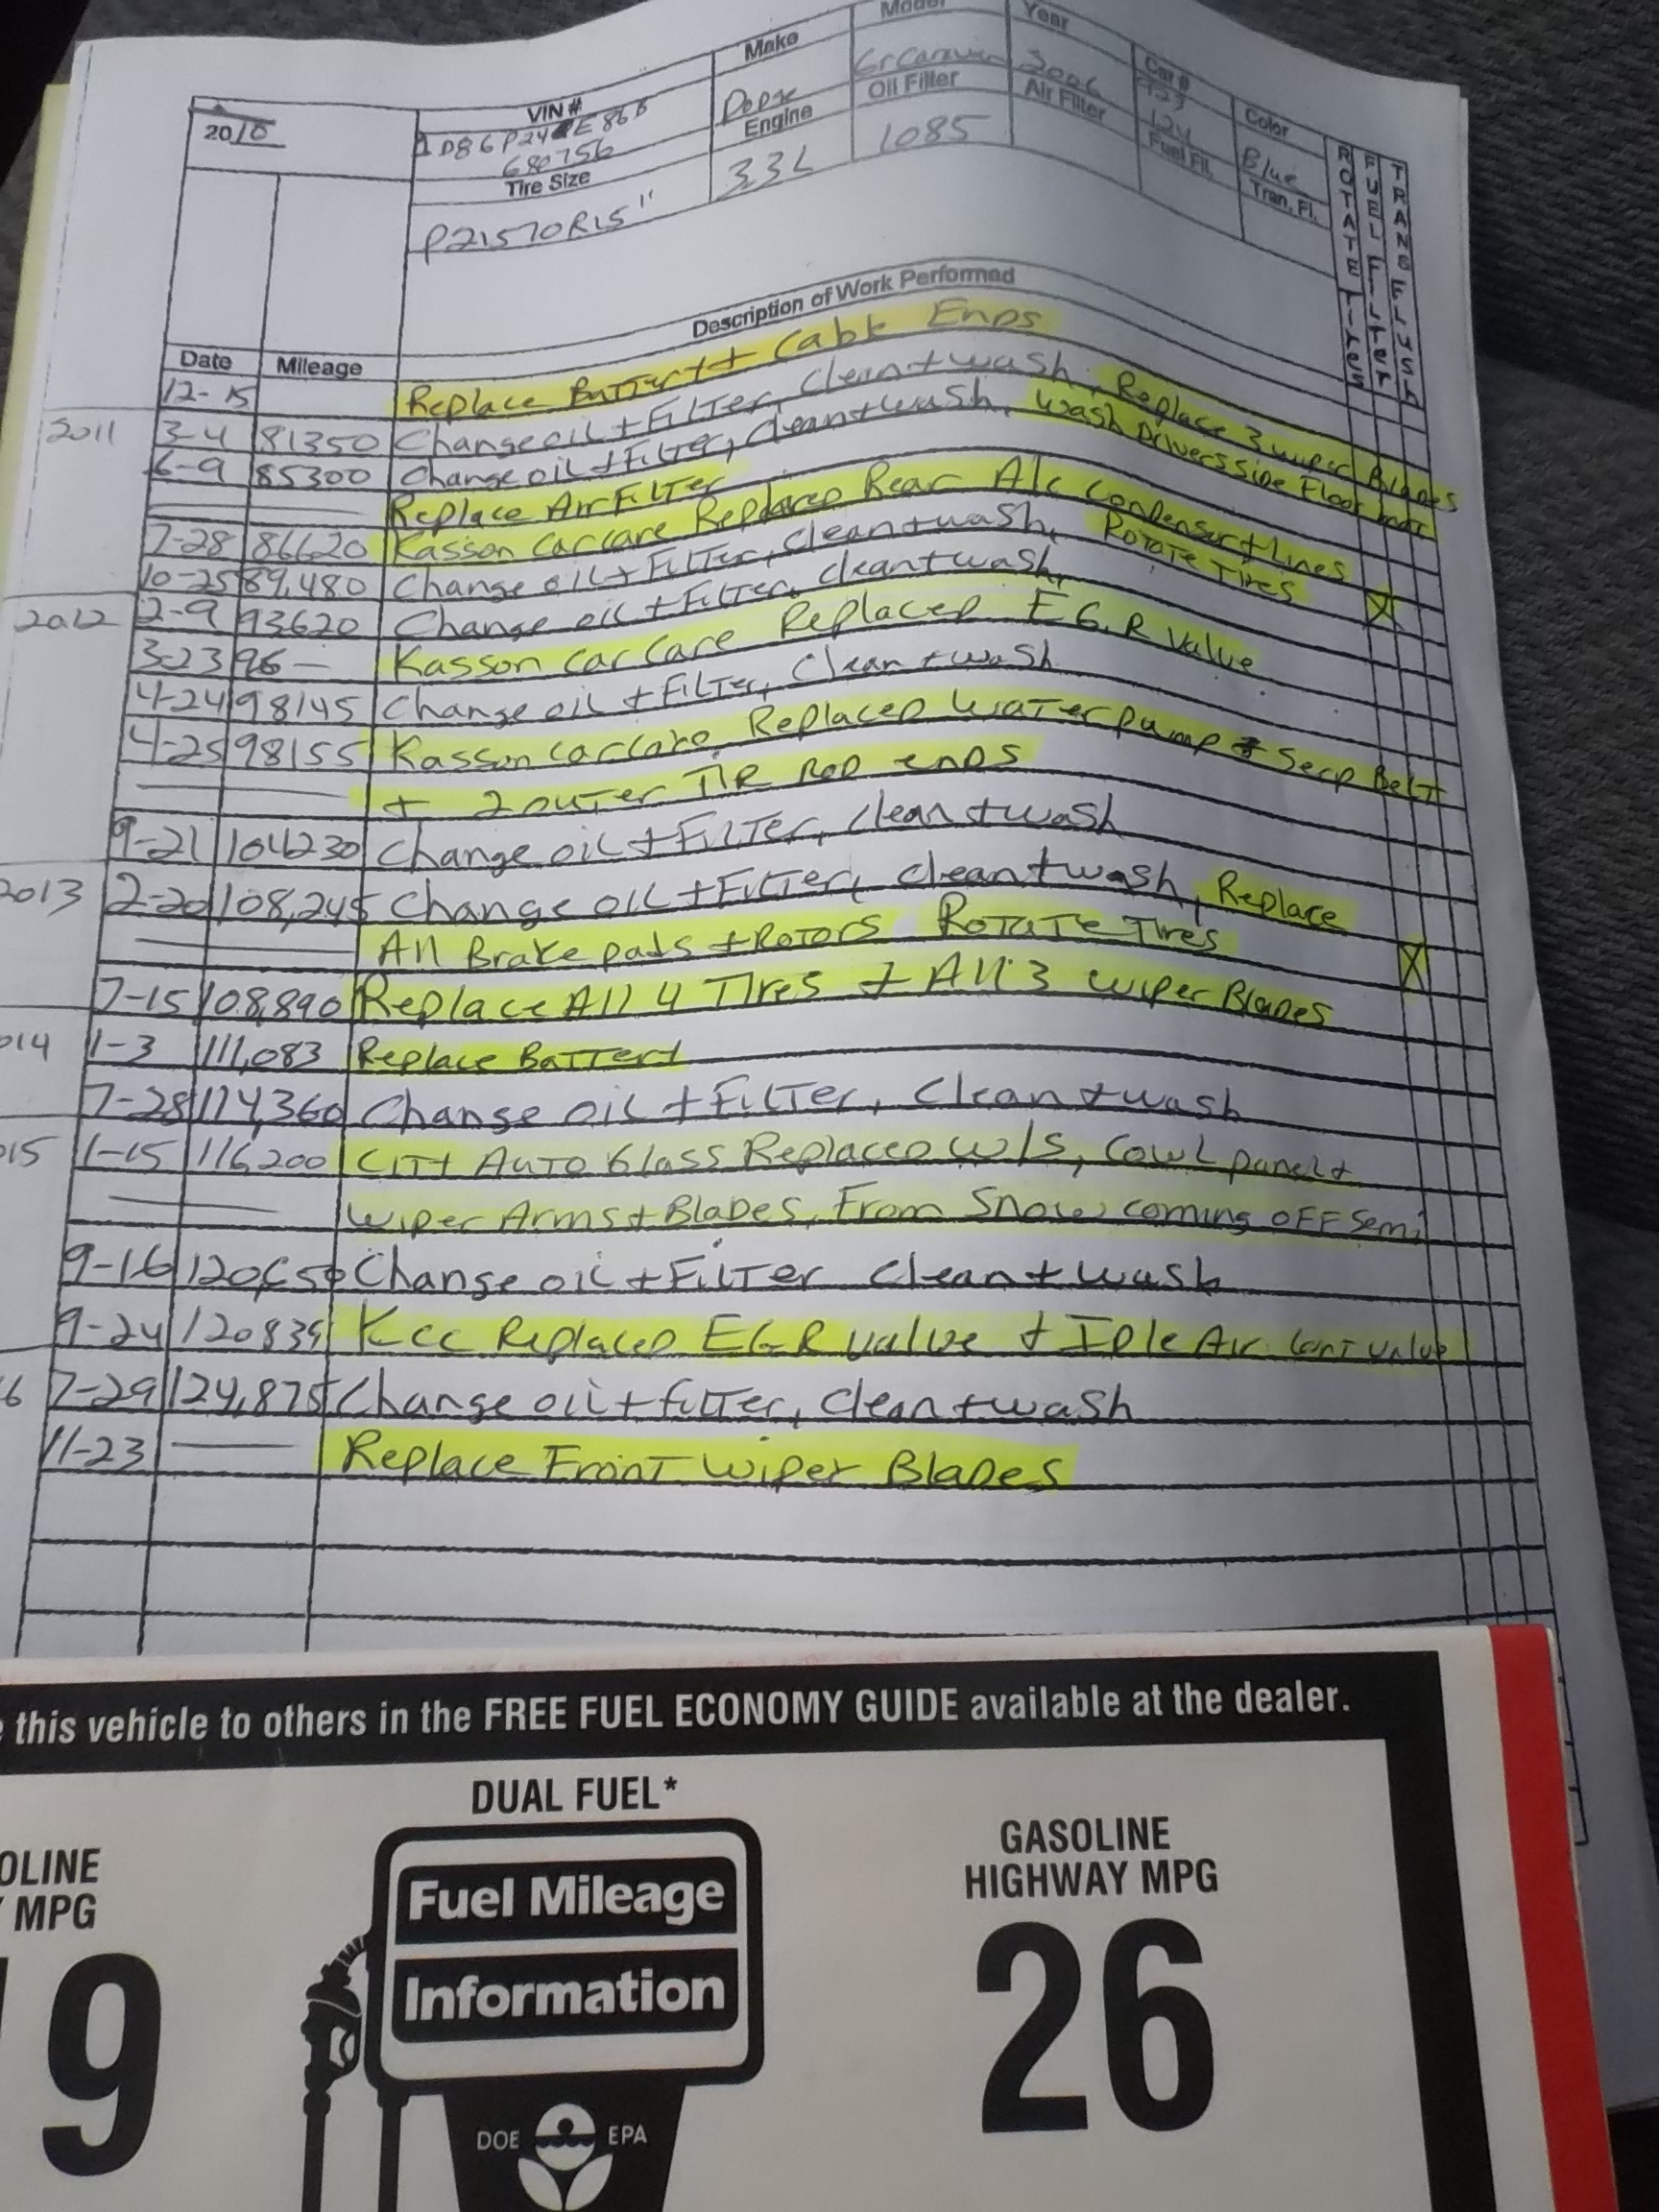 Make Model Year
VIN # Dodge Gr Caravan 2006 Car #
2010 Engine Oil Filter Air Filter 123 Color
680756 3.3L 1085 124 Blue
Tire Size Fuel Fil. Tran. Fl.
P21570R15"
ROTATE TIRES
FUEL FILTER
TRANS FLUSH
Description of Work Performed
Date Mileage
12-15 Replace Battery + Cable Ends
2011 3-4 81350 Change oil + Filter, Clean + wash, Replace 3 wiper Blades
6-9 85300 Change oil + Filter, Clean + wash, Wash Driversside Floor mat
Replace Air Filter
7-28 86620 Kasson Car care Replaced Rear A/c Condensur + Lines
10-25 89,480 Change oil + Filter, Clean + wash, Rotate Tires X
2012 2-9 93620 Change oil + Filter, clean + wash,
3-23 96— Kasson Car Care Replaced E.G.R Valve
4-24 98145 Change oil + Filter, Clean + wash
4-25 98155 Kasson Car Care Replaced Water pump + Serp Belt
+ 2 outer TIR ROD ends
9-21 104230 Change oil + Filter, Clean + wash
2013 2-20 108,245 Change oil + Filter, clean + wash, Replace
All Brake pads + Rotors Rotate Tires X
7-15 108,890 Replace All 4 Tires + All 3 wiper Blades
014 1-3 111,083 Replace Battery
7-28 114,360 Change oil + Filter, Clean + wash
015 1-15 116200 City Auto Glass Replaced W/S, Cowl panel +
Wiper Arms + Blades, From Snow coming off Semi
9-16 120,650 Change oil + Filter Clean + wash
9-24 120839 Kcc Replaced EGR valve + Idle Air Cont valve
6 7-29 124,875 Change oil + filter, Clean + wash
11-23 Replace Front Wiper Blades
this vehicle to others in the FREE FUEL ECONOMY GUIDE available at the dealer.
DUAL FUEL*
OLINE GASOLINE
MPG HIGHWAY MPG
Fuel Mileage
Information
19 26
DOE EPA